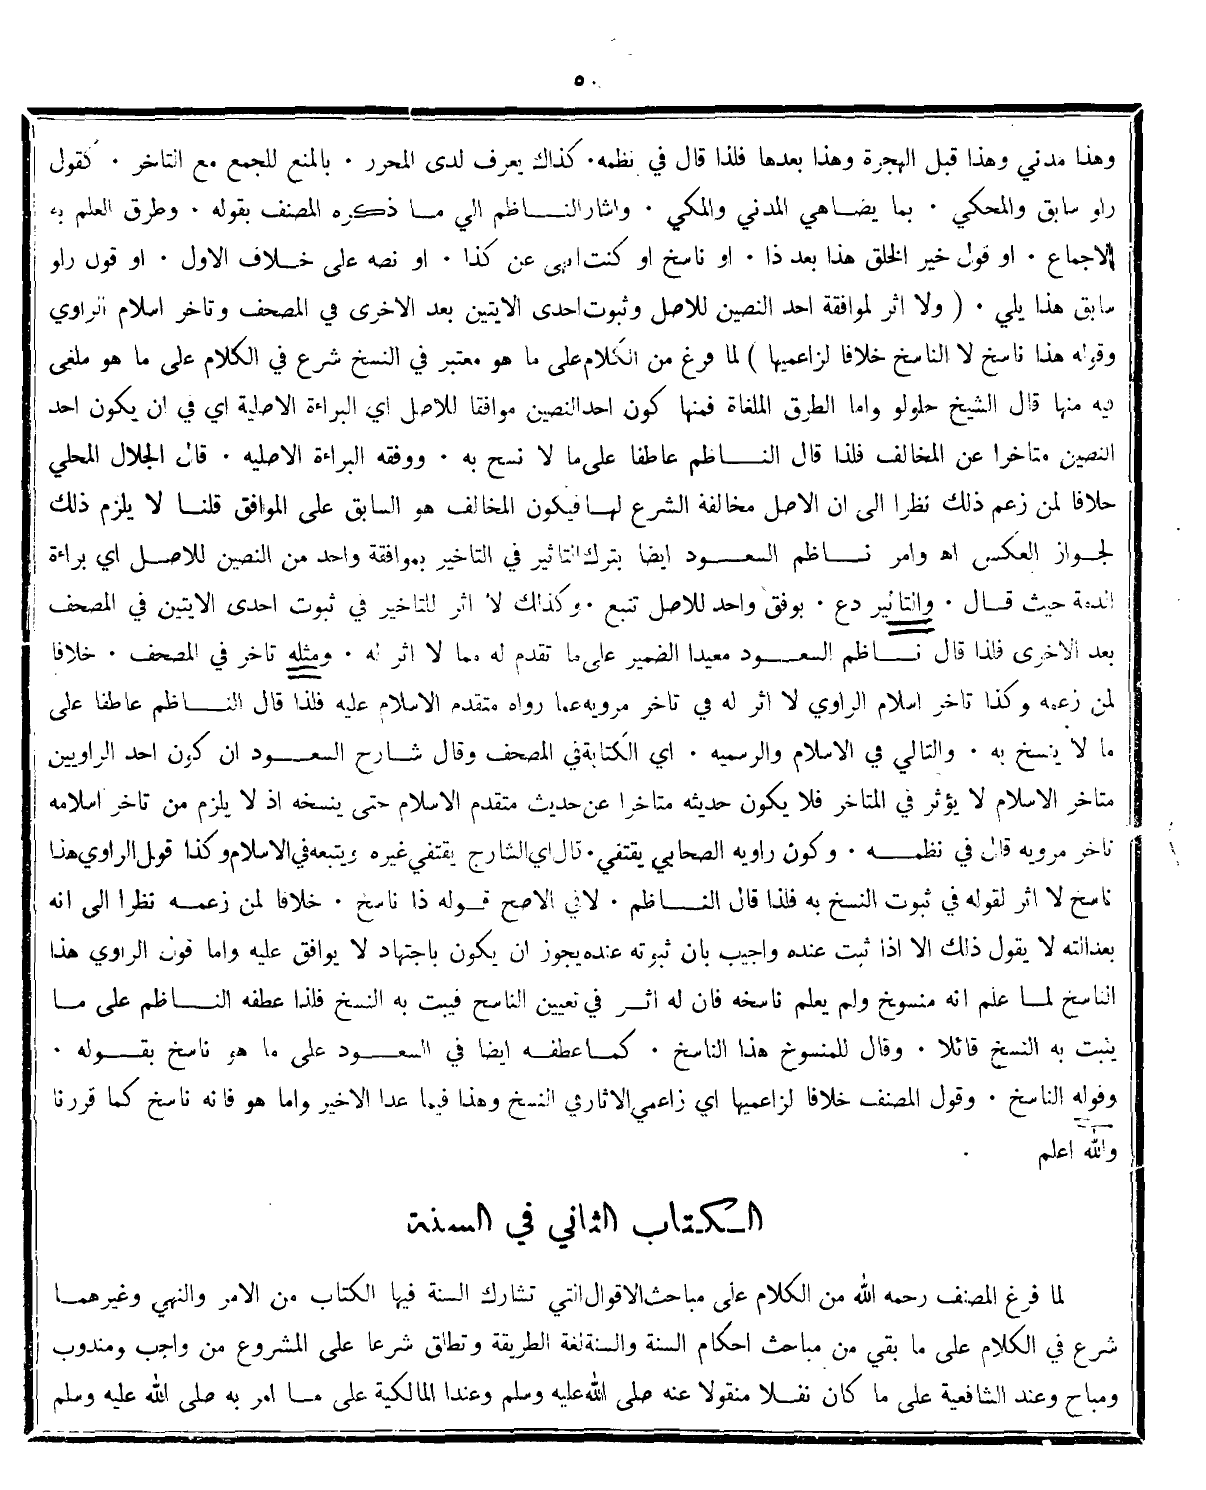 ٥٠
وهذا مدني وهذا قبل الهجرة وهذا بعدها فلذا قال في نظمه · كذاك يعرف لدى المحرر · بالمنع للجمع مع التاخر · كقول
راو سابق والمحكي · بما يضاهي المدني والمكي · واشار الناظم الي ما ذكره المصنف بقوله · وطرق العلم به
الاجماع · او قول خير الخلق هذا بعد ذا · او ناسخ او كنت انهى عن كذا · او نصه على خلاف الاول · او قول راو
سابق هذا يلي · ( ولا اثر لموافقة احد النصين للاصل وثبوت احدى الايتين بعد الاخرى في المصحف وتاخر اسلام الراوي
وقوله هذا ناسخ لا الناسخ خلافا لزاعميها ) لما فرغ من الكلام على ما هو معتبر في النسخ شرع في الكلام على ما هو ملغى
فيه منها قال الشيخ حلولو واما الطرق الملغاة فمنها كون احد النصين موافقا للاصل اي البراءة الاصلية اي في ان يكون احد
النصين متاخرا عن المخالف فلذا قال الناظم عاطفا على ما لا نسخ به · ووفقه البراءة الاصليه · قال الجلال المحلي
خلافا لمن زعم ذلك نظرا الى ان الاصل مخالفة الشرع لها فيكون المخالف هو السابق على الموافق قلنا لا يلزم ذلك
لجواز العكس اه وامر ناظم السعود ايضا بترك التاثير في التاخير بموافقة واحد من النصين للاصل اي براءة
الذمة حيث قال · والتاثير دع · بوفق واحد للاصل تتبع · وكذلك لا اثر للتاخير في ثبوت احدى الايتين في المصحف
بعد الاخرى فلذا قال ناظم السعود معيدا الضمير على ما تقدم له مما لا اثر له · ومثله تاخر في المصحف · خلافا
لمن زعمه وكذا تاخر اسلام الراوي لا اثر له في تاخر مرويه عما رواه متقدم الاسلام عليه فلذا قال الناظم عاطفا على
ما لا ينسخ به · والتالي في الاسلام والرسميه · اي الكتابة في المصحف وقال شارح السعود ان كون احد الراويين
متاخر الاسلام لا يؤثر في المتاخر فلا يكون حديثه متاخرا عن حديث متقدم الاسلام حتى ينسخه اذ لا يلزم من تاخر اسلامه
تاخر مرويه قال في نظمه · وكون راويه الصحابي يقتفي · قال اي الشارح يقتفي غيره ويتبعه في الاسلام وكذا قول الراوي هذا
ناسخ لا اثر لقوله في ثبوت النسخ به فلذا قال الناظم · لا في الاصح قوله ذا ناسخ · خلافا لمن زعمه نظرا الى انه
بعدالته لا يقول ذلك الا اذا ثبت عنده واجيب بان ثبوته عنده يجوز ان يكون باجتهاد لا يوافق عليه واما قول الراوي هذا
الناسخ لما علم انه منسوخ ولم يعلم ناسخه فان له اثر في تعيين الناسخ فيبت به النسخ فلذا عطفه الناظم على ما
يثبت به النسخ قائلا · وقال للمنسوخ هذا الناسخ · كما عطفه ايضا في السعود على ما هو ناسخ بقوله ·
وقوله الناسخ · وقول المصنف خلافا لزاعميها اي زاعمي الاثار في النسخ وهذا فيما عدا الاخير واما هو فانه ناسخ كما قررنا
والله اعلم ·
الكتاب الثاني في السنة
لما فرغ المصنف رحمه الله من الكلام على مباحث الاقوال التي تشارك السنة فيها الكتاب من الامر والنهي وغيرهما
شرع في الكلام على ما بقي من مباحث احكام السنة والسنة لغة الطريقة وتطلق شرعا على المشروع من واجب ومندوب
ومباح وعند الشافعية على ما كان نفلا منقولا عنه صلى الله عليه وسلم وعندا المالكية على ما امر به صلى الله عليه وسلم